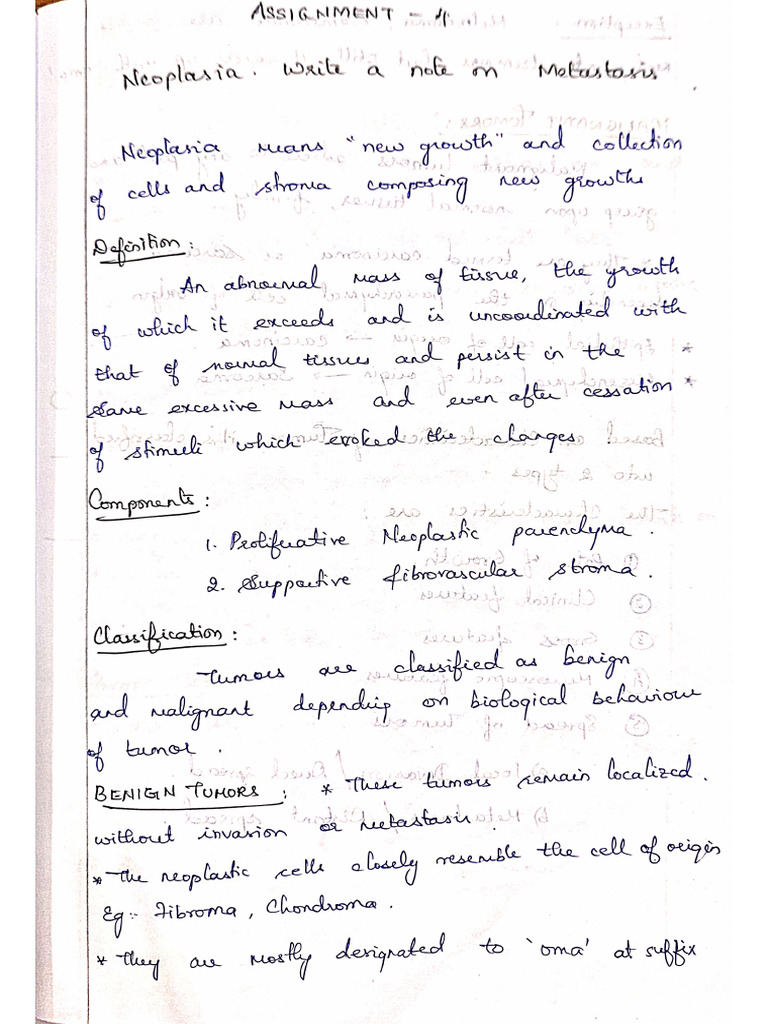 ASSIGNMENT - 4
Neoplasia. Write a note on Metastasis.
Neoplasia means "new growth" and collection
of cells and stroma composing new growths
Definition:
An abnormal mass of tissue, the growth
of which it exceeds and is uncoordinated with
that of normal tissues and persist in the
same excessive mass and even after cessation
of stimuli which evoked the changes.
Components:
1. Proliferative Neoplastic parenchyma.
2. Supportive fibrovascular stroma.
Classification:
Tumors are classified as benign
and malignant depending on biological behaviour
of tumor.
BENIGN TUMORS: * These tumors remain localized.
without invasion or metastasis.
* The neoplastic cells closely resemble the cell of origin
Eg:- Fibroma, Chondroma.
* They are mostly designated to 'oma' at suffix